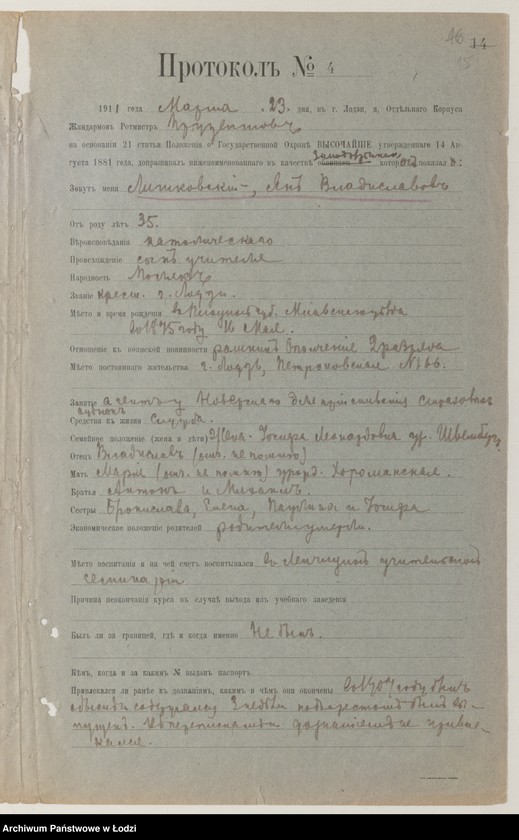 14
15
Протоколъ № 4
1911 года Марта 23 дня, въ г. Лодзи, я, Отдѣльнаго Корпуса
Жандармовъ Ротмистръ
на основаніи 21 статьи Положенія о Государственной Охранѣ ВЫСОЧАЙШЕ утвержденнаго 14 Ав-
густа 1881 года, допрашивалъ нижепоименованнаго въ качествѣ котор показал :
Зовутъ меня Янъ Владиславовъ
Отъ роду лѣтъ 35.
Вѣроисповѣданія католическаго
Происхожденіе сынъ учителя
Народность Полякъ
Званіе крест. г. Лодзи.
Мѣсто и время рожденія въ губ. уѣзда
въ 1875 году 16 Мая.
Отношеніе къ воинской повинности ратникъ ополченія 2 разряда
Мѣсто постояннаго жительства г. Лодзь, Петроковская № 166.
Занятіе агентъ у
Средства къ жизни служба.
Семейное положеніе (жена и дѣти) Жена Іосифа Леонардовна ур.
Отецъ Владиславъ (отч. не помню)
Мать Марія (отч. не помню) урожд.
Братья Антонъ и Михаилъ.
Сестры Бронислава, Елена, Паулина и Іосифа
Экономическое положеніе родителей родители умерли.
Мѣсто воспитанія и на чей счетъ воспитывался въ учительской
семинаріи
Причина неокончанія курса въ случаѣ выхода изъ учебнаго заведенія
Былъ ли за границей, гдѣ и когда именно Не былъ.
Кѣмъ, когда и за какимъ № выданъ паспортъ
Привлекался ли ранѣе къ дознаніямъ, какимъ и чѣмъ они окончены Въ 1907 году былъ
обыскъ содержался 2 недѣли подъ арестомъ былъ вы-
пущенъ. Къ дознаніямъ не привле-
кался.
Archiwum Państwowe w Łodzi